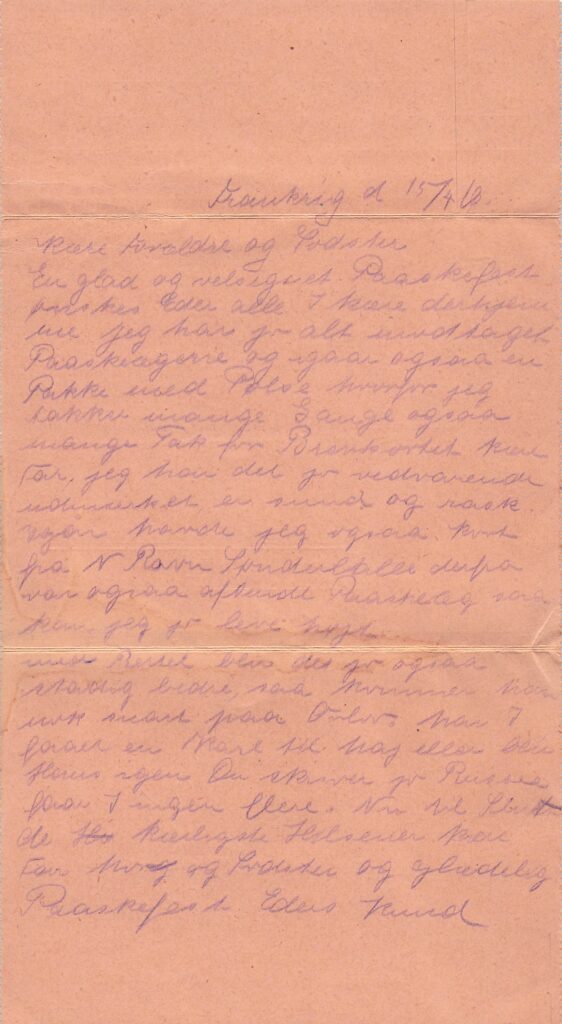 Frankrig d 15/4
Kære Forældre og Sødster
En glad og velsignet Paaskefest
ønskes Eder alle I kære derhjem
me jeg har jo alt modtaget
Paaskeægene og igaar ogsaa en
Pakke med Pølse hvorfor jeg
takker mange Gange ogsaa
mange Tak for Brevkortet kære
Far, jeg har det jo vedvarende
udmærket, er sund og rask.
igaar havde jeg ogsaa Kort
fra N Ravn derfra
var ogsaa afsendt Paaskeæg saa
kan jeg jo leve højt.
med blev det jo ogsaa
stadig bedre, saa kommer han
nok snart paa Orlov. har I
faaet en Karl til Maj eller blev
Hans igen Du skriver jo Russere
faar I ingen flere. Nu til Slut
de kærligste Hilsener kære
Far Mor og Sødster og glædelig
Paaskefest Eders Knud